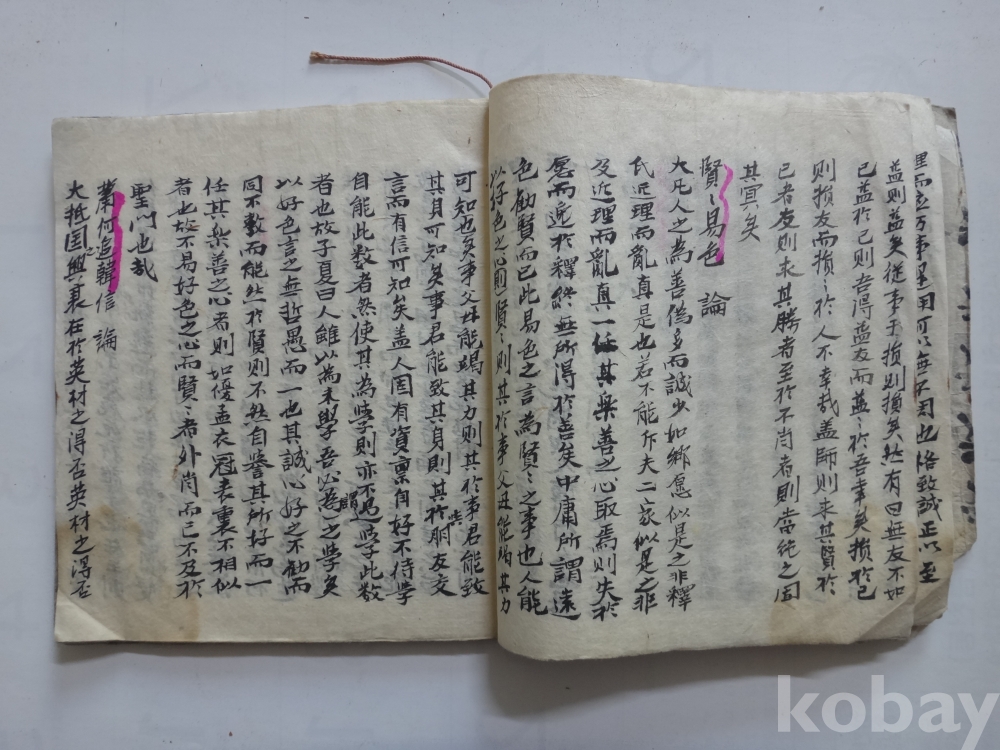 理而応万事是固可以無不因也格致誠正以至
益則益矣從事于損則損矣然有曰無友不如
己益於己則者得益友而益〻於吾幸矣損於己
則損友而損〻於人不幸哉盖師則求其賢於
己者友則求其勝者至於不肖者則當絶之固
其冥矣
賢〻易色 論
大凡人之為善偽多而誠少如鄉愿似是之非釋
氏近理而亂真是也若不能斥夫二家似是之非
及近理而亂真一任其樂善之心取焉則失於
愿而逃於釋終無所得於善矣中庸所謂遠
色勸賢而已此易色之言為賢〻之事也人能
以好色之心則賢〻則其於事父母能竭其力
可知也矣事父母能竭其力則其於事君能致
其身可知矣事君能致其身則其於朋友交
言而有信可知矣盖人固有資禀自好不待學
自能此数者然使其為學則亦不過學此数
者也故子夏曰人雖以為未學吾必為之學矣
以好色言之無哲愚而一也其誠心好之不勸而
同不教而能然於賢則不然自誉其所好而一
任其樂善之心者則如優孟衣冠表裏不相似
者也故不易好色之心而賢〻者外尚而已不及於
聖門也哉
蕭何追韓信 論
大抵国之興衰在於英材之得否英材之得否
kobay